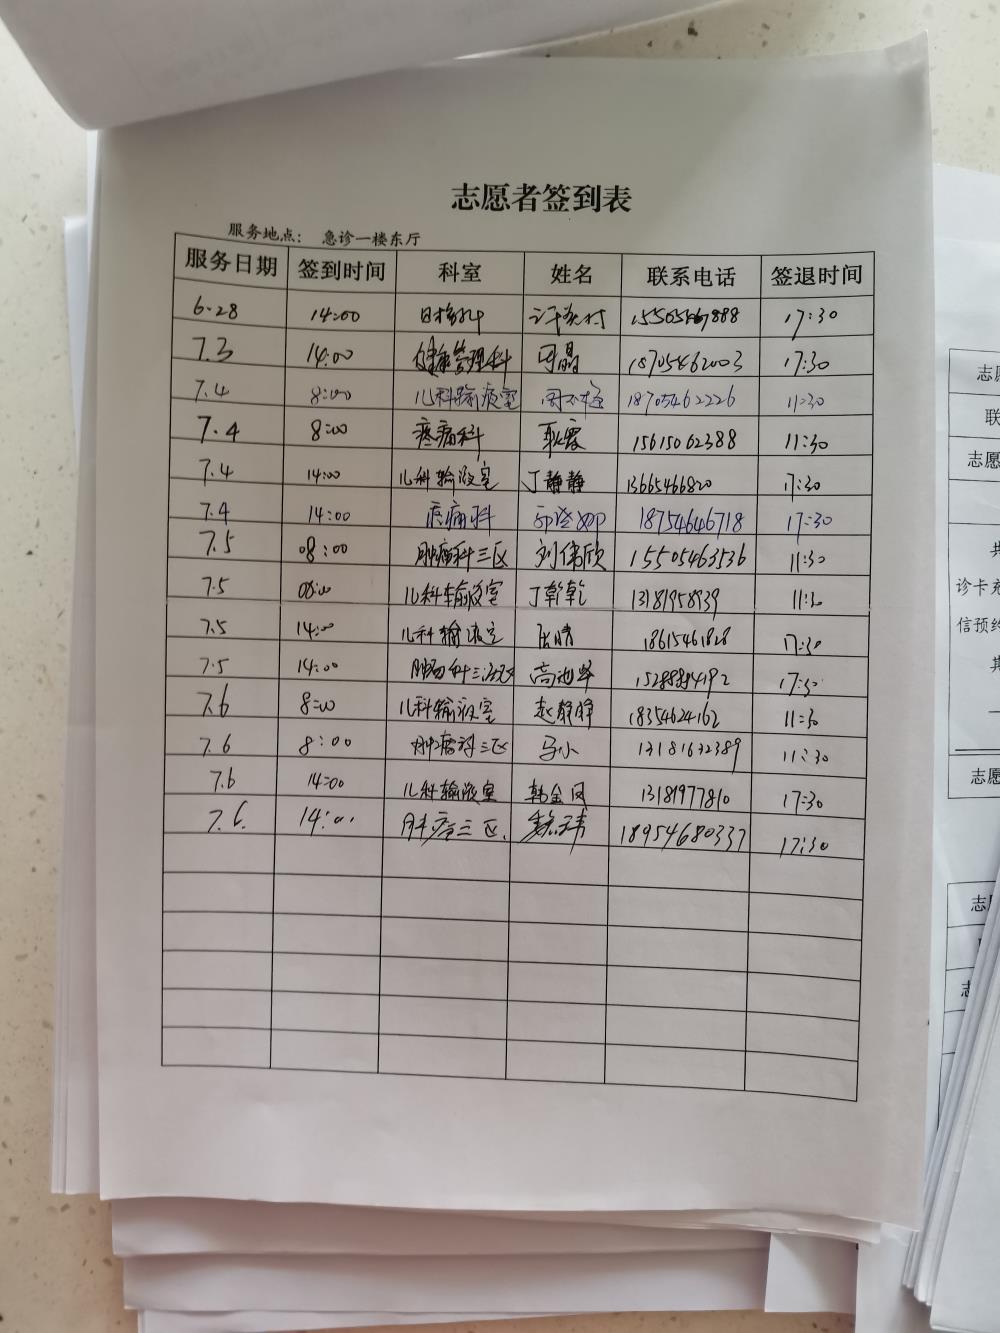 志愿者签到表
服务地点： 急诊一楼东厅
服务日期 签到时间 科室 姓名 联系电话 签退时间
6.28 14:00 17:30
7.3 14:00 健康管理科 司晶 18705462003 17:30
7.4 8:00 儿科输液室 18705462226 11:30
7.4 8:00 疼痛科 耿震 15615062388 11:30
7.4 14:00 儿科输液室 丁静静 13665466820 17:30
7.4 14:00 疼痛科 18754646718 17:30
7.5 08:00 肿瘤科三区 刘伟欣 15505463536 11:30
7.5 08:00 儿科输液室 丁乾乾 13181958939 11:30
7.5 14:00 儿科输液室 18615461828 17:30
7.5 14:00 17:30
7.6 8:00 儿科输液室 赵静静 18354624162 11:30
7.6 8:00 肿瘤科三区 马小 13181632389 11:30
7.6 14:00 儿科输液室 韩金凤 13181977810 17:30
7.6. 14:00 三区. 18954680337 17:30
志
联
志愿
共
诊卡充
信预约
其
志愿
志
志